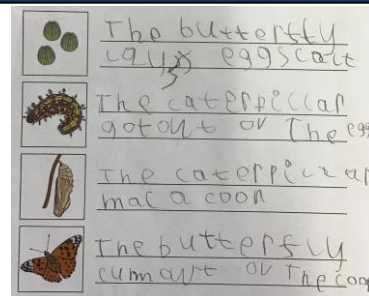 The butterfly
lays eggs
The caterpiccar
got out ov The egg
The caterpictar
mac a coon
The butterfly
cum out ov The coon